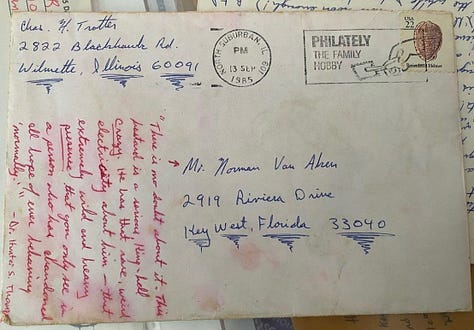 Chas. H. Trotter
2822 Blackhawk Rd.
Wilmette, Illinois 60091
NORTH SUBURBAN, IL 601
PM
13 SEP
1985
PHILATELY
THE FAMILY
HOBBY
USA
22
Reticulated Helmet
Mr. Norman Van Aken
2919 Riviera Drive
Key West, Florida 33040
"There is no doubt about it. This
bastard is a serious
Crazy. He has that rare, weird
electricity about him – that
extremely wild and heavy
presence that you only see in
a person who has abandoned
all hope of ever behaving
'normally.'" Dr. Hunter S. Thompson